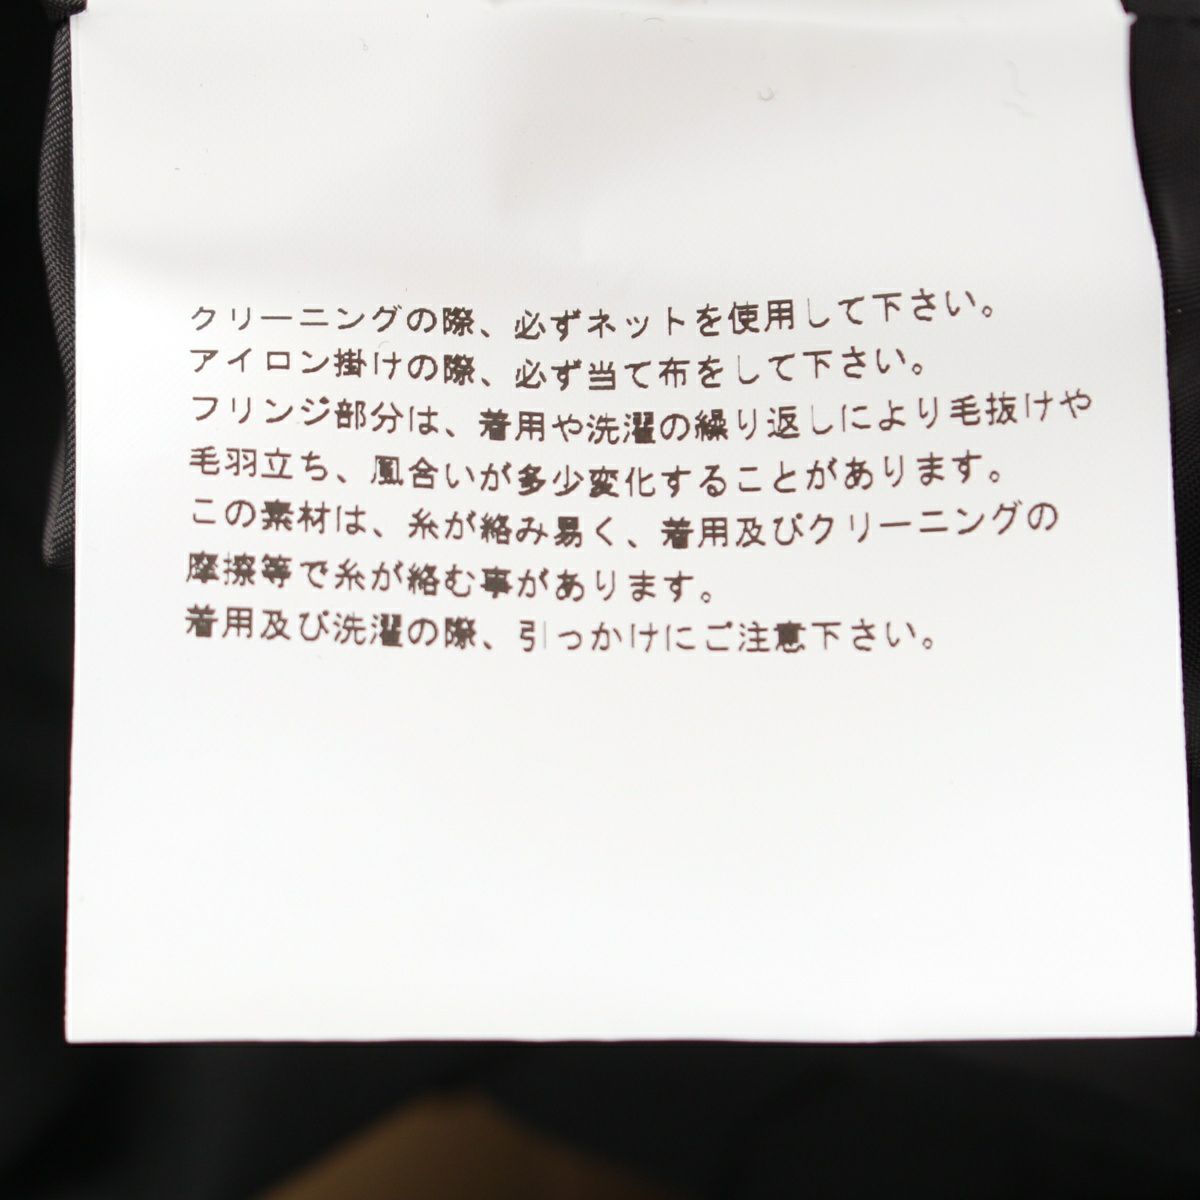 クリーニングの際、必ずネットを使用して下さい。
アイロン掛けの際、必ず当て布をして下さい。
フリンジ部分は、着用や洗濯の繰り返しにより毛抜けや
毛羽立ち、風合いが多少変化することがあります。
この素材は、糸が絡み易く、着用及びクリーニングの
摩擦等で糸が絡む事があります。
着用及び洗濯の際、引っかけにご注意下さい。